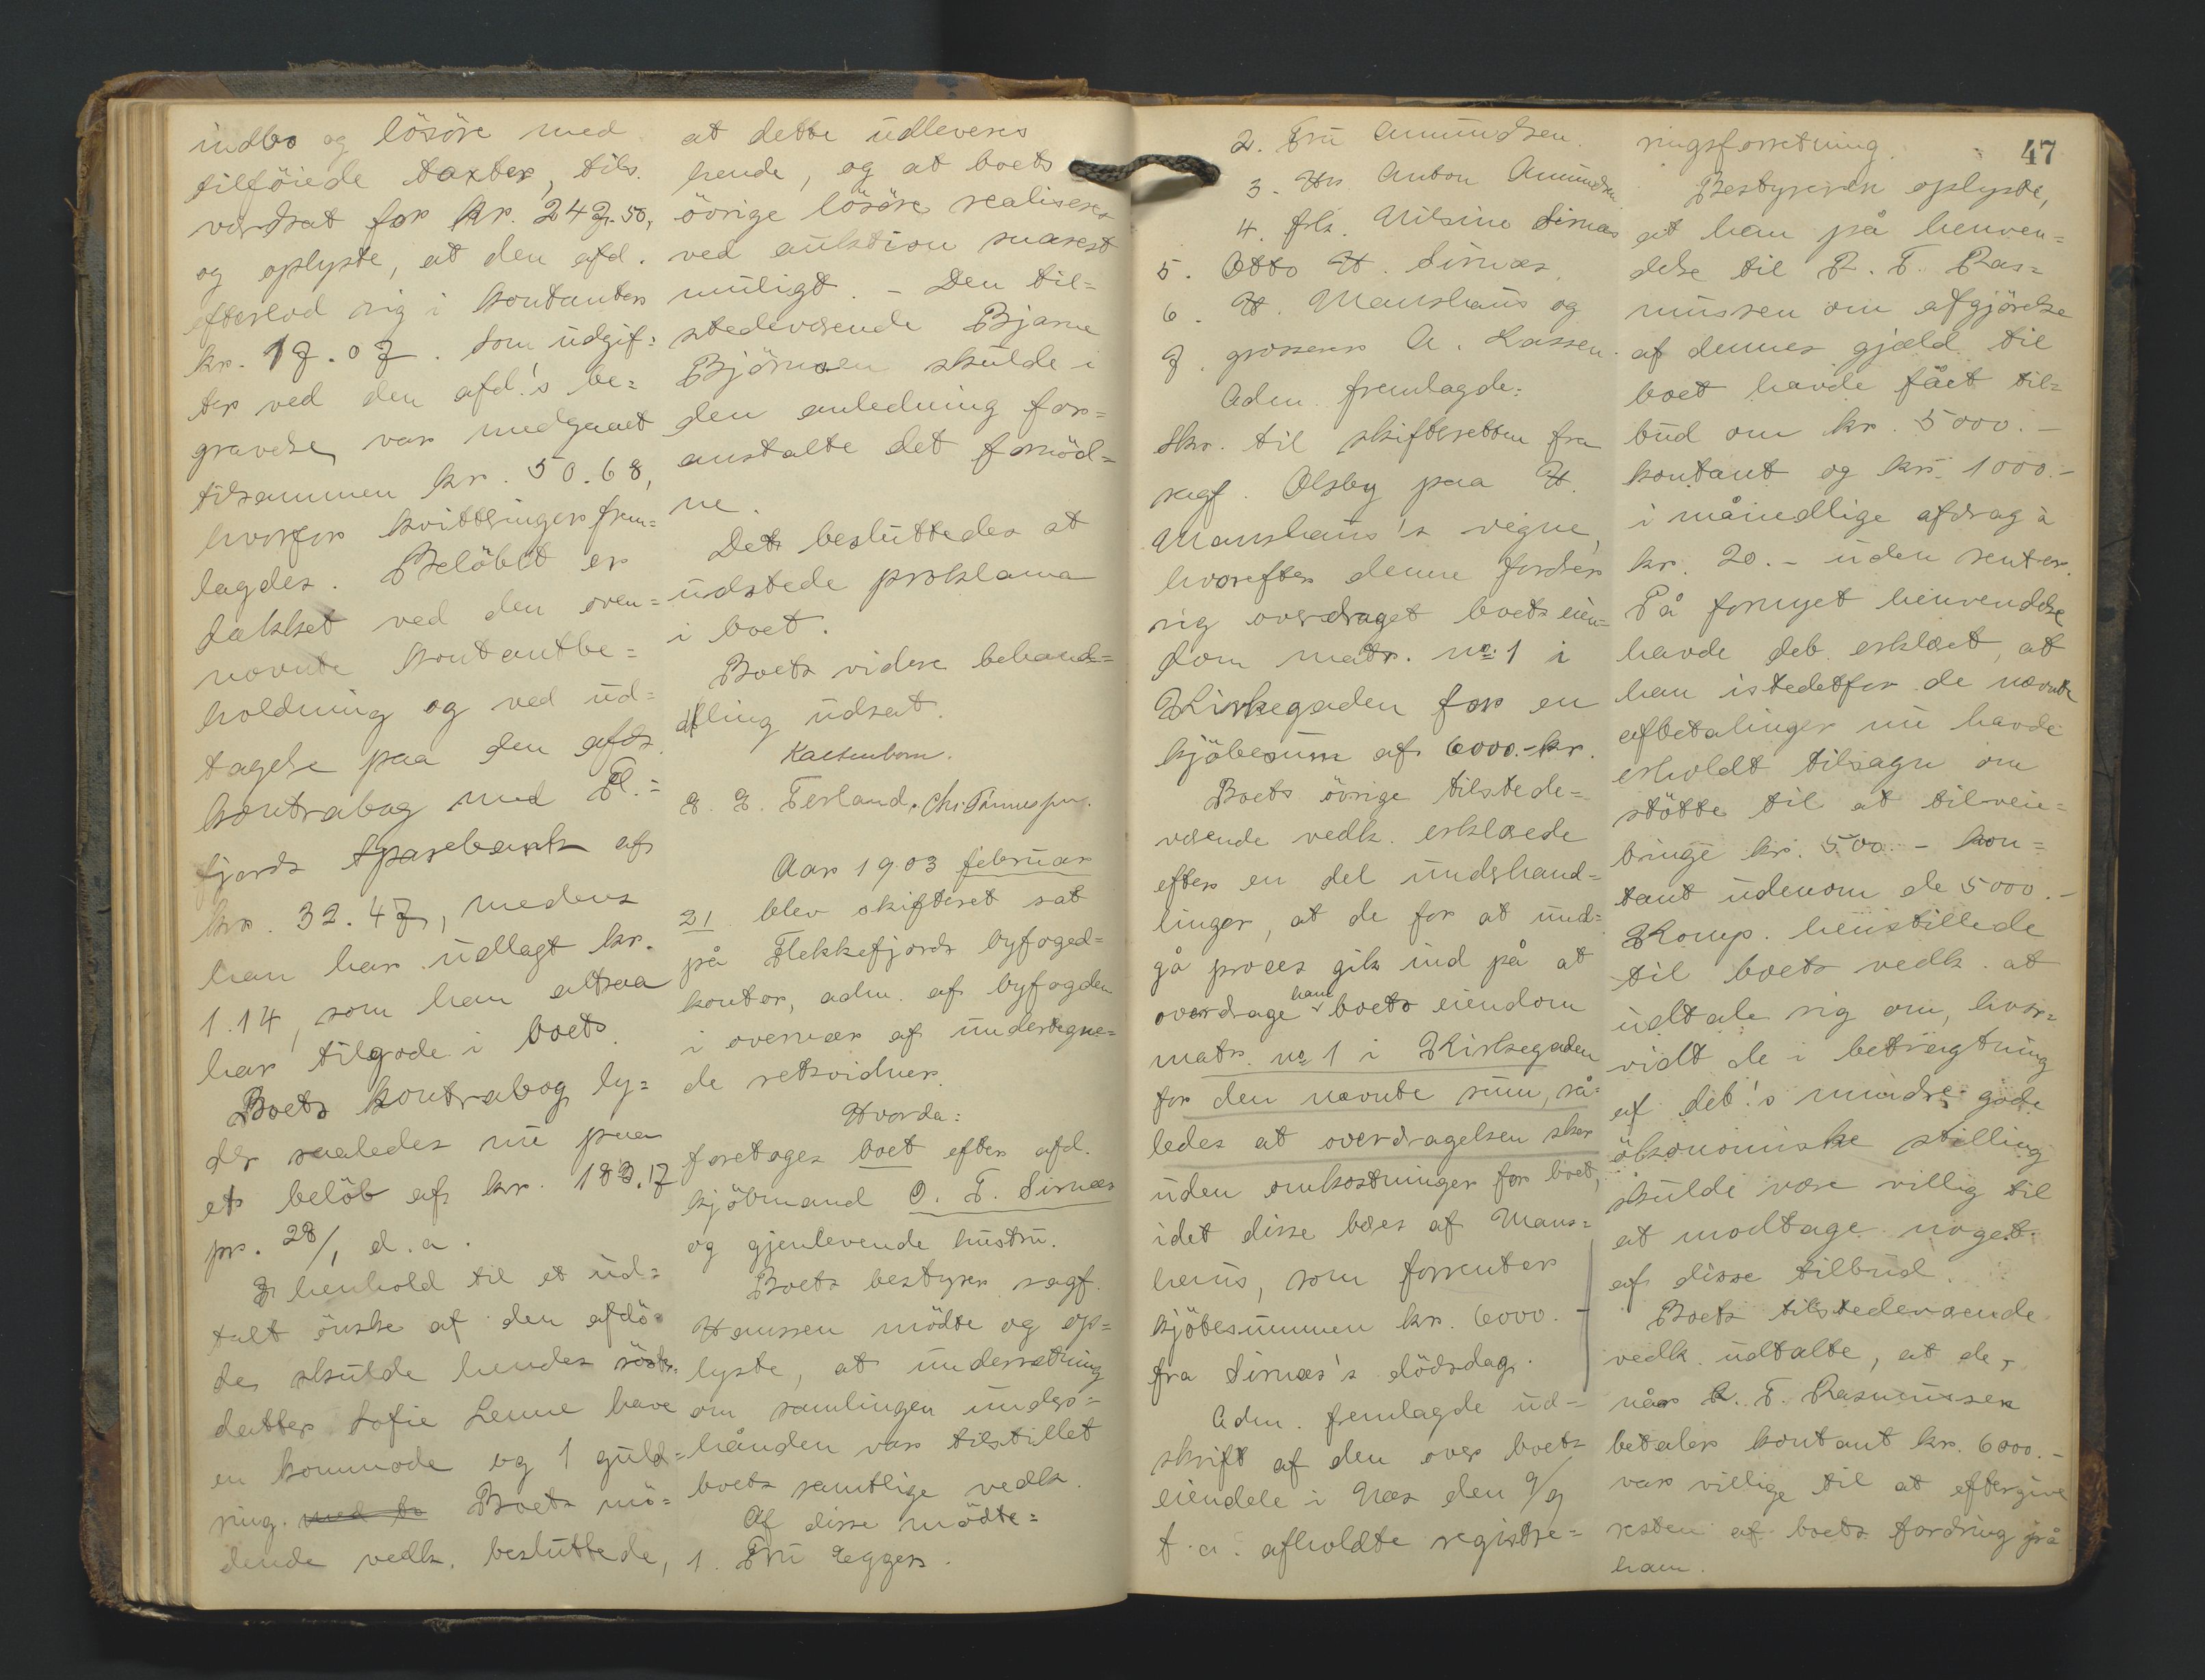 indbo og lösöre med
tilföiede taxter, tils.
verdsat for kr. 247.50,
og oplyste, at den afd.
efterlod sig i kontanter
kr. 17.07. Som udgif=
ter ved den afd.'s be=
gravelse var medgaaet
tilsammen kr. 50.68,
hvorfor kvitteringer frem=
lagdes. Belöbet er
dækket ved den oven=
nævnte kontantbe=
holdning og ved ud=
tagelse paa den afd's
kontrabog med Fl.=
fjords Sparebank af
kr. 32.47, medens
han har udlagt kr.
1.14, som han altsaa
har tilgode i boet.
Boets kontrabog ly=
der saaledes nu paa
et belöb af kr. 183.17
pr. 28/1 d. a.
I henhold til et ud=
talt önske af den afdö=
de, skulde hendes söster=
datter Sofie Lenne have
en kommode og 1 guld=
ring. med to Boets mö=
dende vedk. besluttede,
at dette udleveres
hende, og at boets
övrige lösöre realiseres
ved auktion snarest
muligt. - Den til=
stedeværende Bjarne
Björnsen skulde i
den anledning for=
anstalte det fornöd=
ne.
Det besluttedes at
udstede proklama
i boet.
Boets videre behand=
ling udsat.
Kaltenborn.
E. E. Terland. Chr. Tönnessen.
Aar 1903 februar
21 blev skifteret sat
på Flekkefjords byfoged=
kontor, adm. af byfogden
i overvær af undertegne=
de retsvidner.
Hvorda:
foretages boet efter afd.
kjöbmand O. F. Sirnæs
og gjenlevende hustru.
Boets bestyrer sagf.
Hanssen mödte og op=
lyste, at underretning
om samlingen under=
hånden var tilstillet
boets samtlige vedk.
Af disse mödte=
1. Fru Egger.
2. Fru Amundsen.
3. Hr. Anton Amundsen
4. frk. Nilsine Sirnæs
5. Otto H. Sirnæs.
6. H. Manshaus og
7. grosserer A. Lassen.
Adm. fremlagde:
Skr. til skifteretten fra
sagf. Olsby paa H.
Manshaus's vegne,
hvorefter denne fordrer
sig overdraget boets eien=
dom matr. no. 1 i
Kirkegaden for en
kjöbesum af 6000.- kr.
Boets övrige tilstede=
værende vedk. erklærede
efter en del underhand=
linger, at de for at und=
gå proces gik ind på at
overdrage ham boets eiendom
matr. no 1 i Kirkegaden
for den nævnte sum, så=
ledes at overdragelsen sker
uden omkostninger for boet,
idet disse bæres af Mans=
haus, som forrenter
kjöbesummen kr. 6000.-
fra Sirnæs's dödsdag.
Adm. fremlagde ud=
skrift af den over boets
eiendele i Næs den 9/9
f. a. afholdte registre=
47
ringsforretning.
Bestyreren oplyste,
at han på henven=
delse til R. F. Ras=
mussen om afgjörelse
af dennes gjæld til
boet havde fået til=
bud om kr. 5000.-
kontant og kr. 1000.-
i månedlige afdrag à
kr. 20.- uden renter.
På fornyet henvendelse
havde deb. erklæret, at
han istedetfor de nævnte
afbetalinger nu havde
erholdt tilsagn om
stötte til at tilveie=
bringe kr. 500.- kon=
tant udenom de 5000.-
Komp. henstillede
til boets vedk. at
udtale sig om, hvor=
vidt de i betragtning
af deb.'s mindre gode
ökonomiske stilling
skulde være villig til
at modtage noget
af disse tilbud.
Boets tilstedeværende
vedk. udtalte, at de,
når R. F. Rasmussen
betaler kontant kr. 6000.-
var villige til at eftergive
resten af boets fordring på
ham.